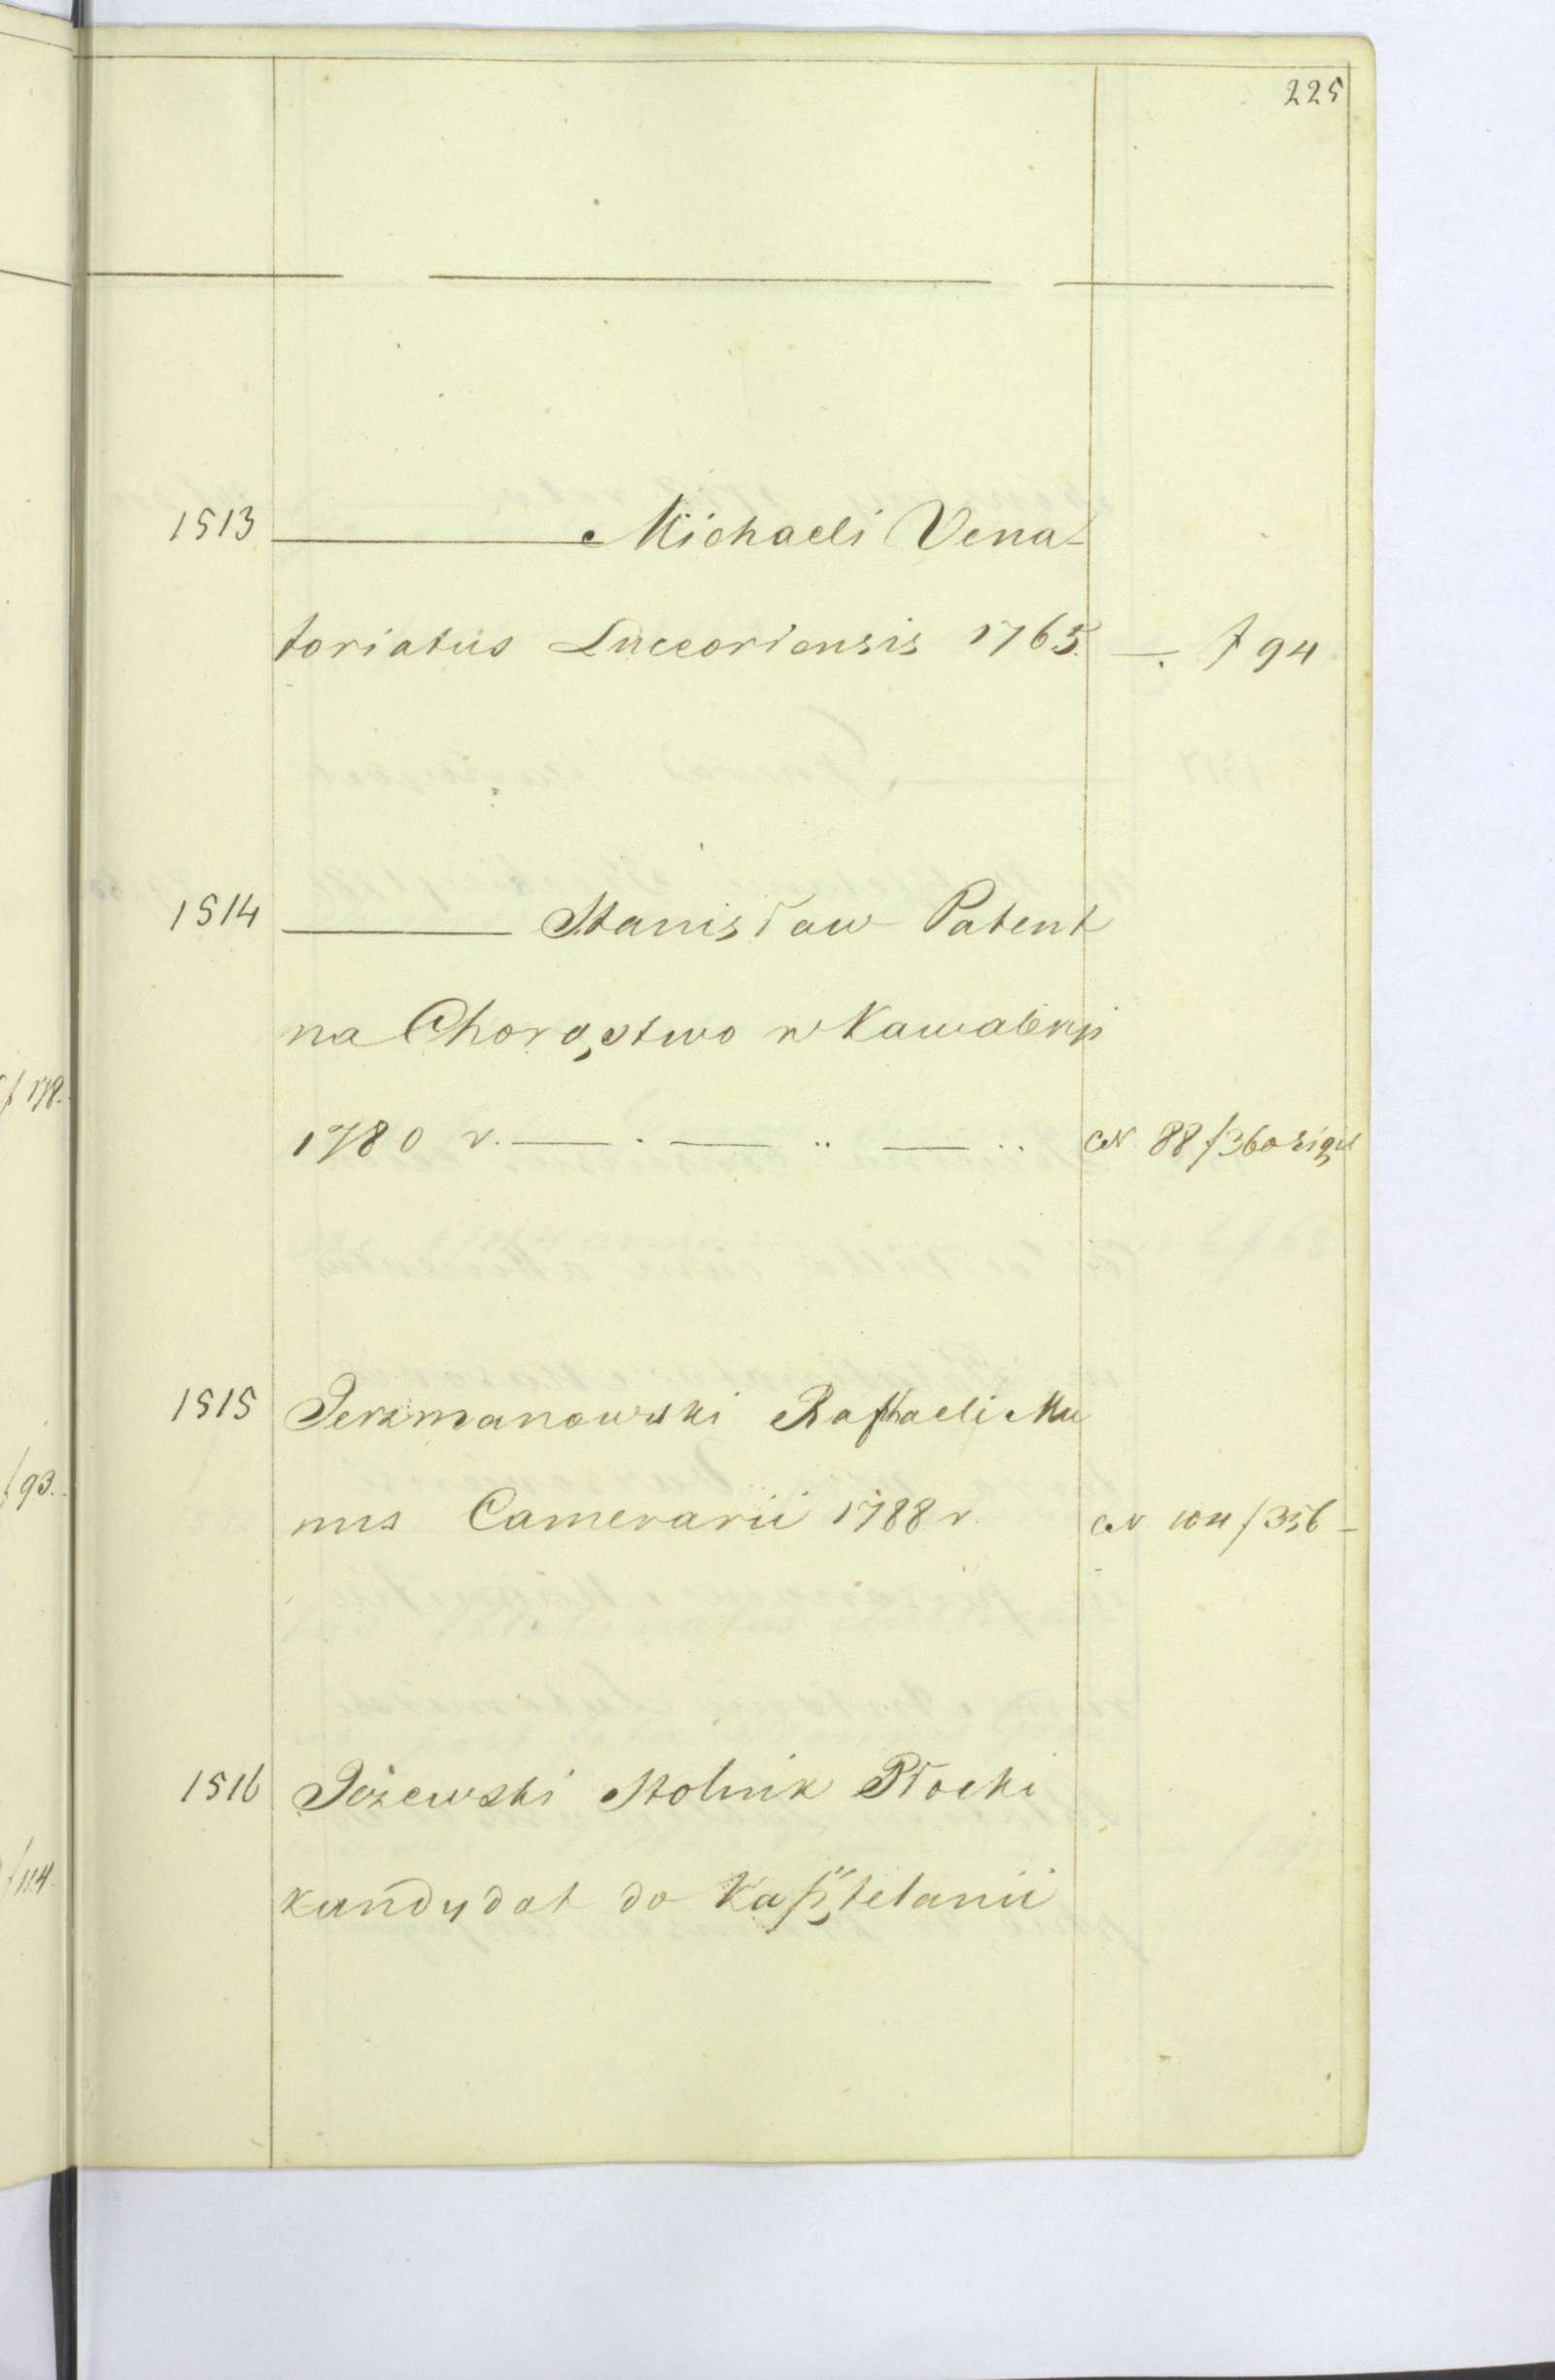 225
1513 ——— Michaeli Vena-
toriatus Luceoriensis 1765. —. f 94
1514 ——— Stanisław Patent
na Chorąstwo w Kawaleryi
1780 r. — . — .. — .. N 88 f 360
1515 Jerzmanowski Raphaeli Mu
nus Camerarii 1788 r. N 104 f 356 —
1516 Jeżewski Stolnik Płocki
kandydat do Kasztelanii
f 178.
f 93.
f 124.